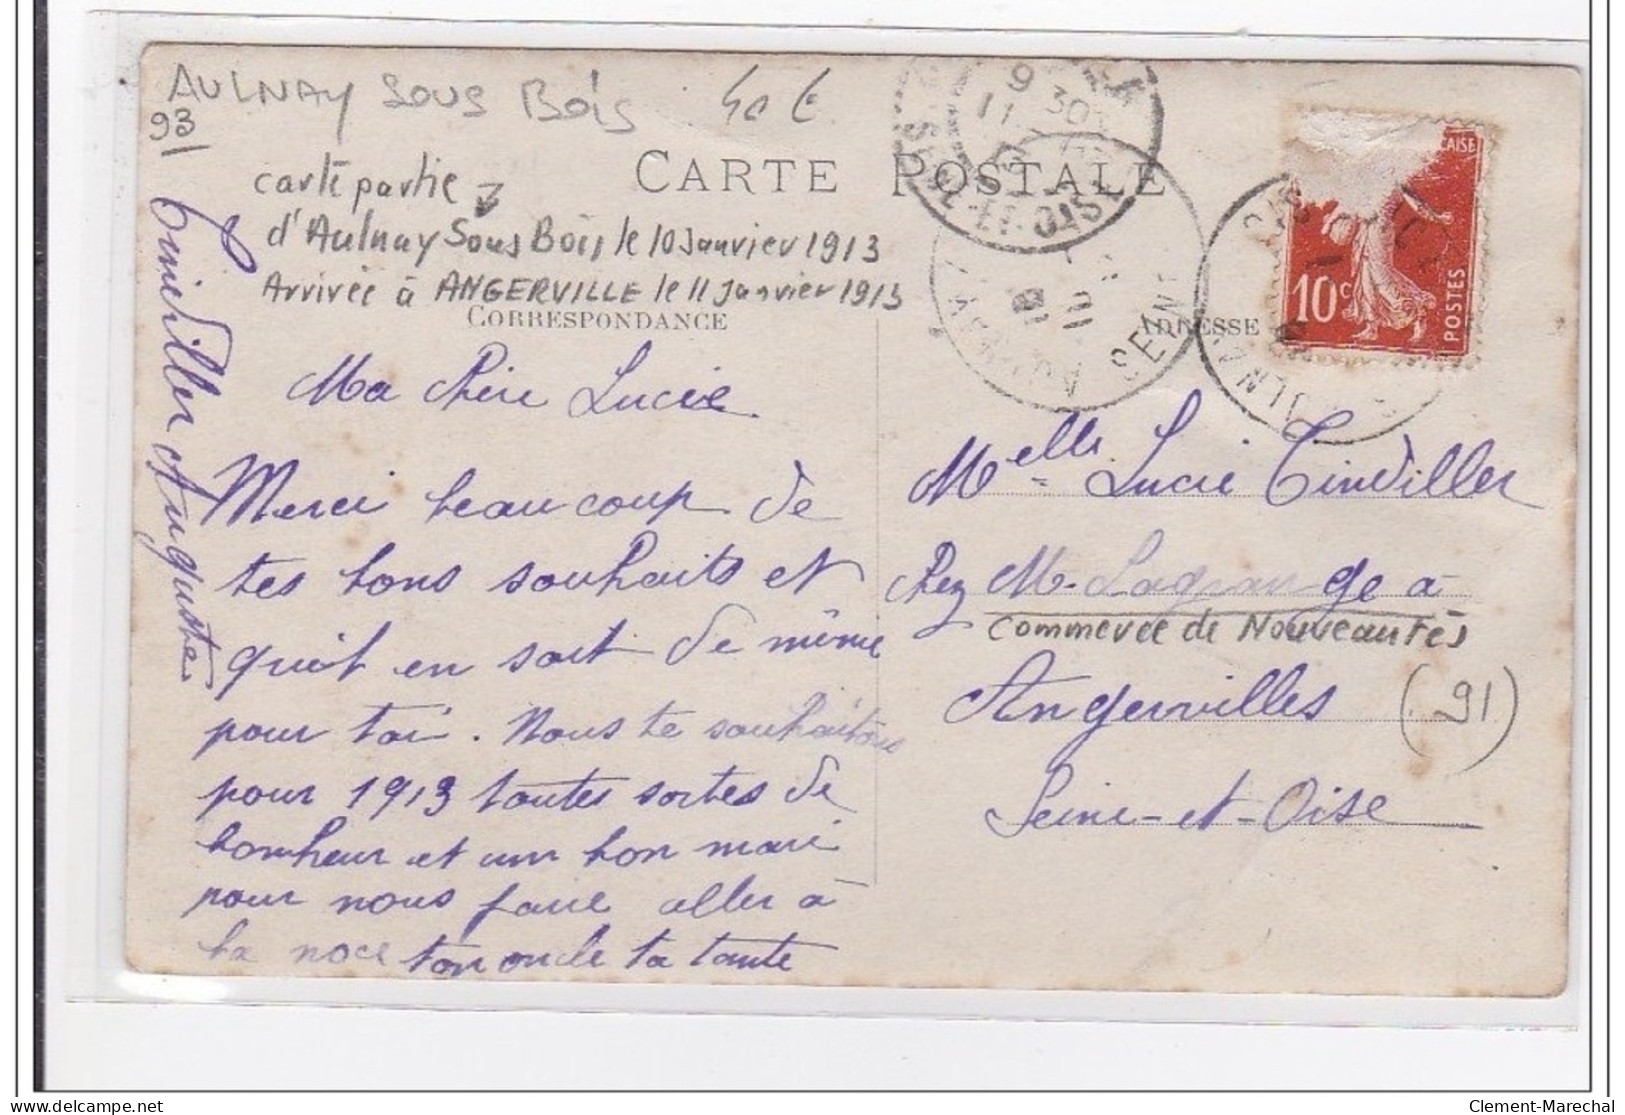 AULNAY SOUS Bois 40 €
93/
CARTE POSTALE
carte partie
d'Aulnay Sous Bois le 10 Janvier 1913
Arrivée à ANGERVILLE le 11 Janvier 1913
CORRESPONDANCE
ADRESSE
Ma chère Lucie.
Merci beaucoup de
tes bons souhaits et
qu'it en soit de même
pour toi. Nous te souhaitons
pour 1913 toutes sortes de
bonheur et un bon mari
pour nous faire aller à
ta noce ton oncle ta tante
Tinviller Auguste
Melle Lucie Tinviller
chez M. Lagrange à
Commerce de Nouveautés
Angervilles (91)
Seine-et-Oise
9 30
11
SEINE-ET-OISE
CAISE
10c
POSTES
Clement-Marechal